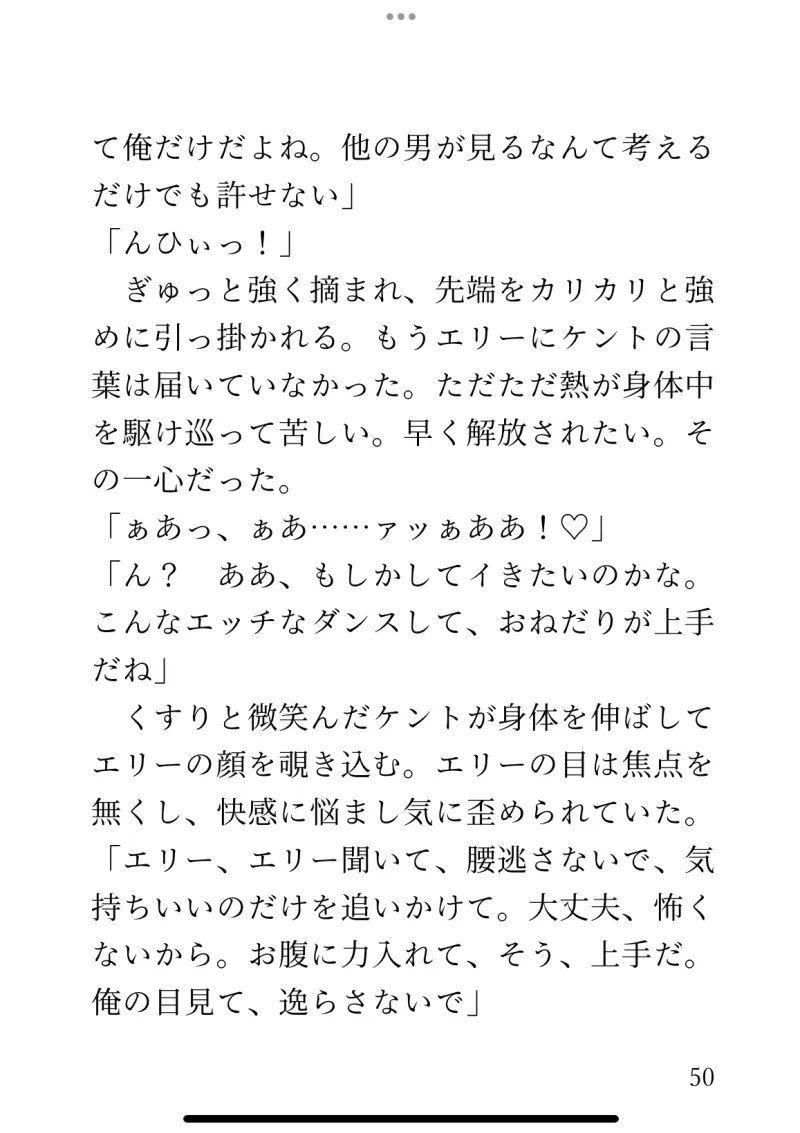 て俺だけだよね。他の男が見るなんて考える
だけでも許せない」
「んひぃっ！」
　ぎゅっと強く摘まれ、先端をカリカリと強
めに引っ掛かれる。もうエリーにケントの言
葉は届いていなかった。ただただ熱が身体中
を駆け巡って苦しい。早く解放されたい。そ
の一心だった。
「ぁあっ、ぁあ……ァッぁああ！♡」
「ん？　ああ、もしかしてイきたいのかな。
こんなエッチなダンスして、おねだりが上手
だね」
　くすりと微笑んだケントが身体を伸ばして
エリーの顔を覗き込む。エリーの目は焦点を
無くし、快感に悩まし気に歪められていた。
「エリー、エリー聞いて、腰逃さないで、気
持ちいいのだけを追いかけて。大丈夫、怖く
ないから。お腹に力入れて、そう、上手だ。
俺の目見て、逸らさないで」
50